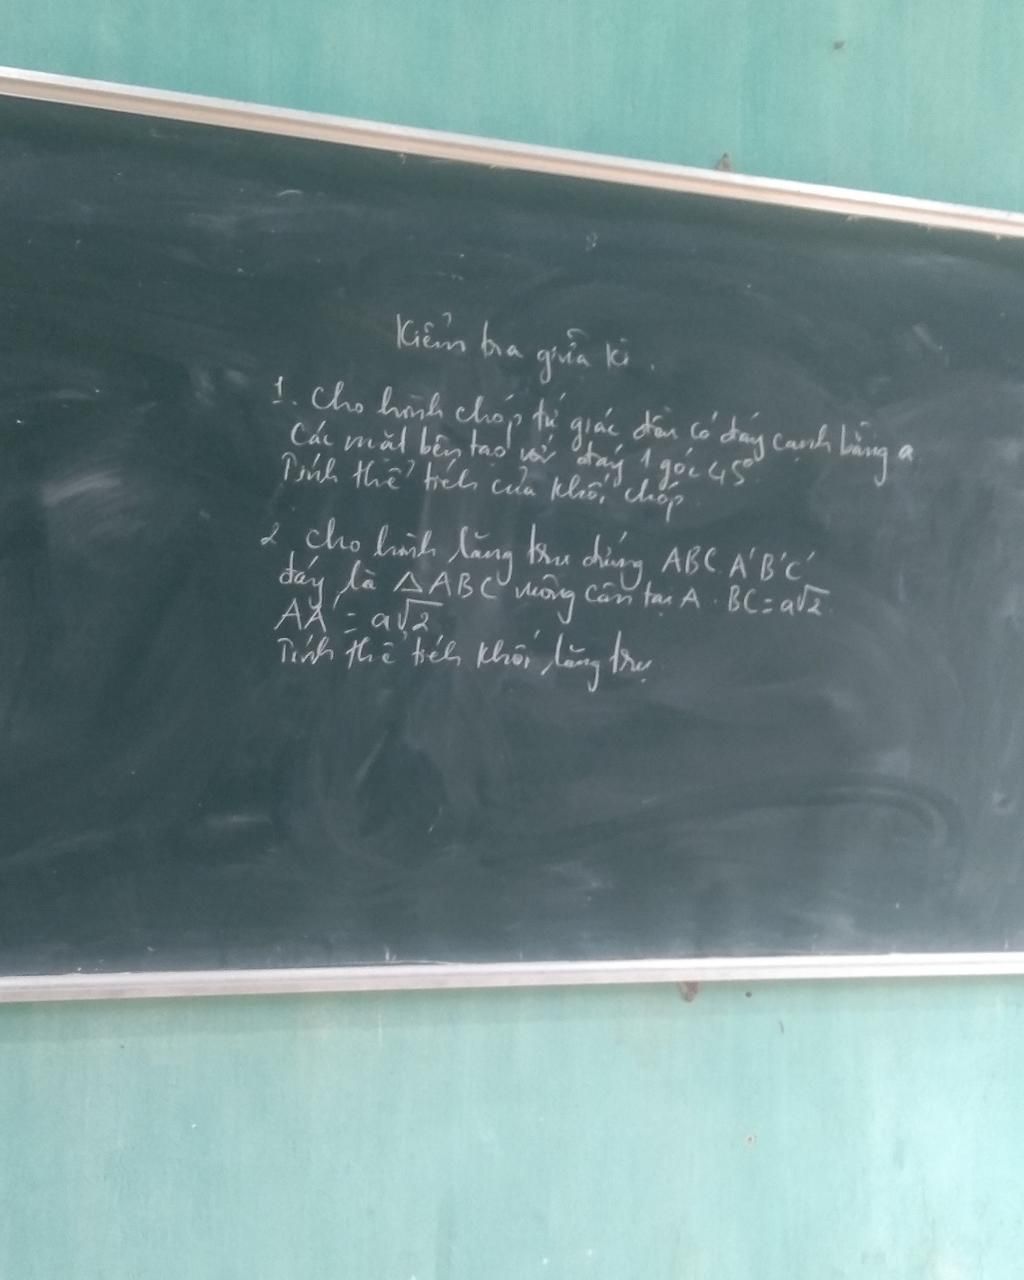 Kiểm tra giữa kì.
1. Cho hình chóp tứ giác đều có đáy cạnh bằng a
Các mặt bên tạo với đáy 1 góc 45°
Tính thể tích của khối chóp
2 Cho hình lăng trụ đứng ABC A'B'C'
đáy là △ABC vuông cân tại A. BC = a√2
AA' = a√2
Tính thể tích khối lăng trụ